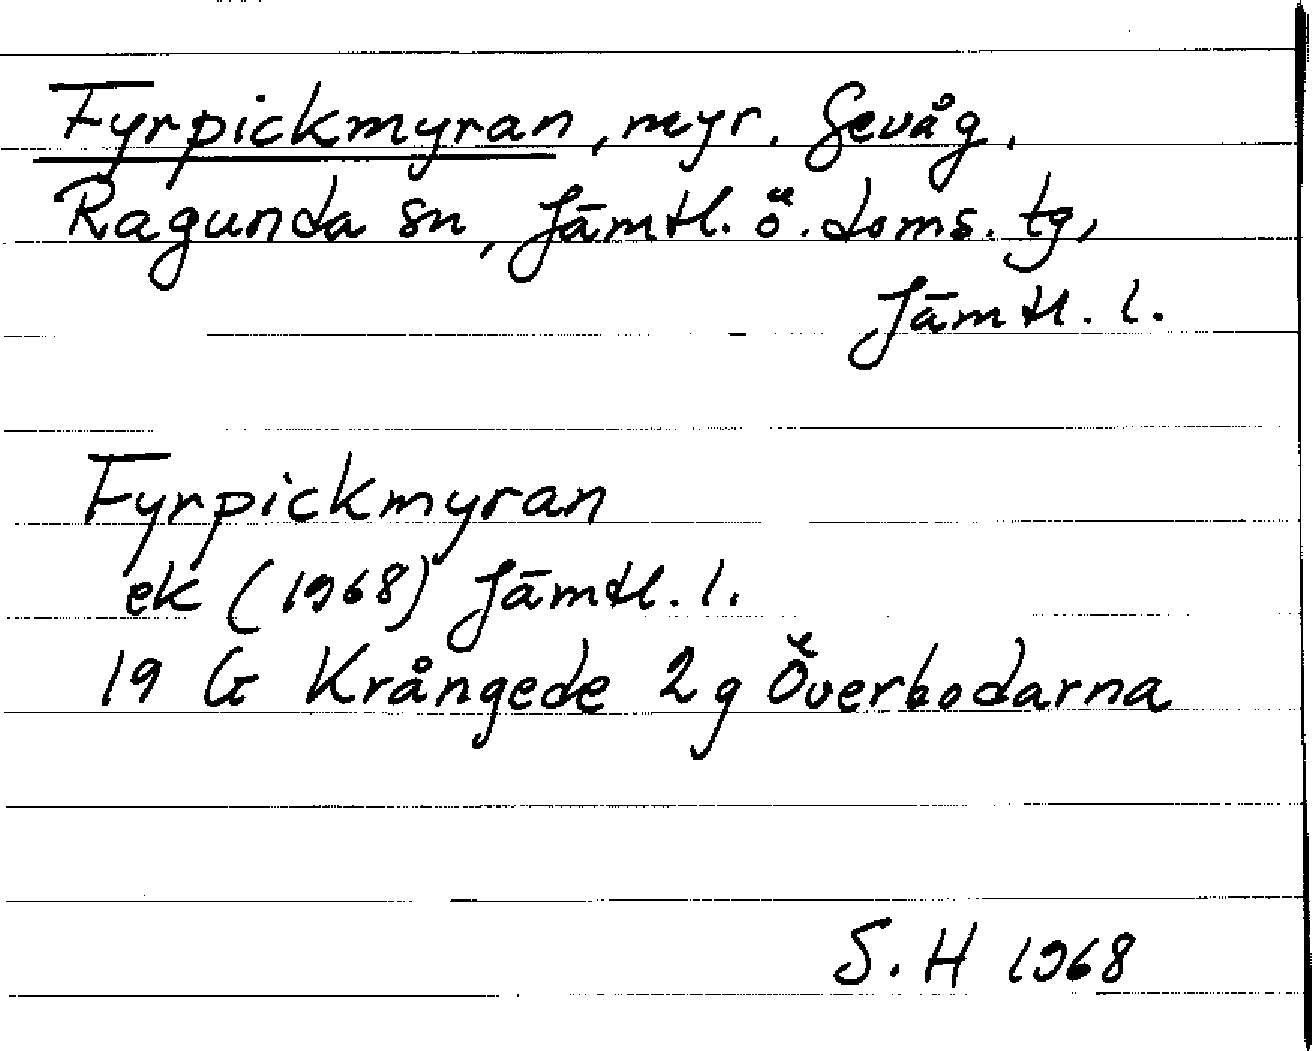 Fyrpickmyran, myr. Gevåg.
Ragunda sn, Jämtl. ö. doms. tg,
Jämtl. l.
Fyrpickmyran
ek (1968) Jämtl. l.
19 G Krångede 2g Överbodarna
S. H 1968